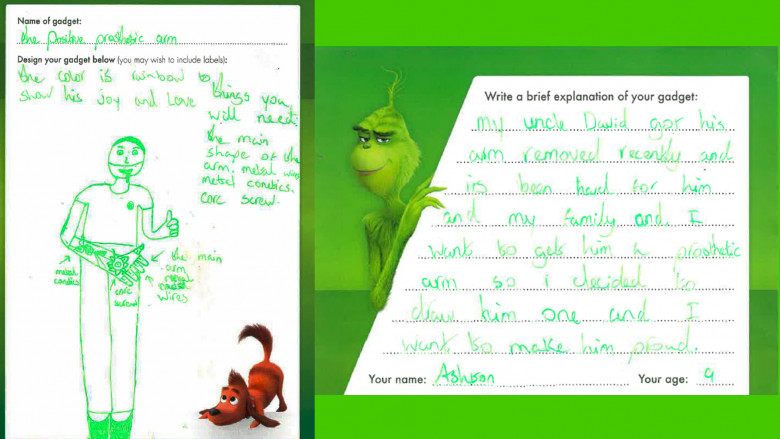 Name of gadget:
the positive prosthetic arm
Design your gadget below (you may wish to include labels):
the color is rainbow to
show his joy and love
things you
will need:
the main
shape of the
arm. metal wires
metal condics.
corc screw.
metal
condics
corc
screw
the main
arm
metal
wires
Write a brief explanation of your gadget:
my uncle David got his
arm removed recently and
its been hard for him
and my family and I
want to gets him a prosthetic
arm so i decided to
draw him one and I
want to make him proud.
Your name: Ashton
Your age: 9